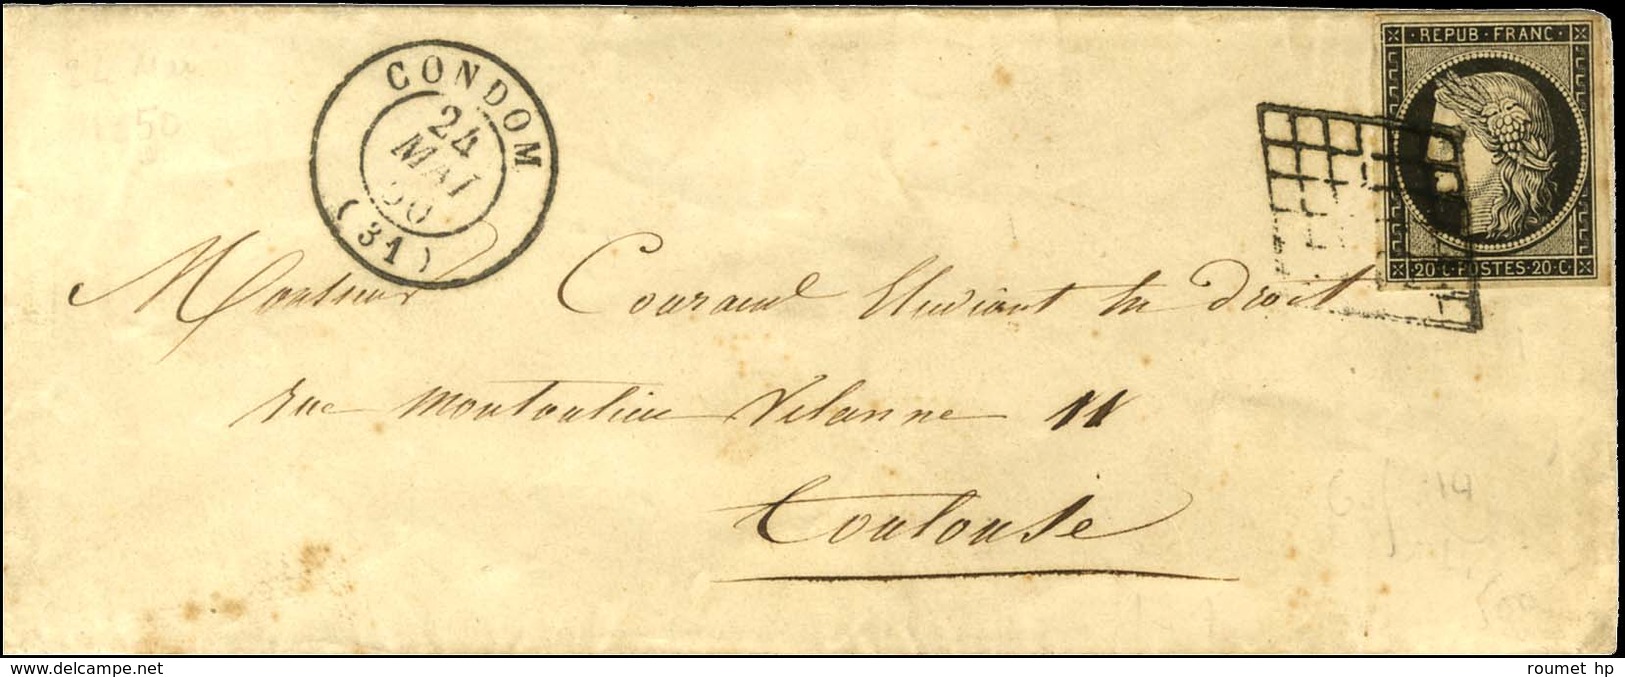 REPUB · FRANC
CONDOM
24
MAI
50
(31)
20 · C · POSTES · 20 · C
Monsieur Couraud Etudiant en droit
rue Montoulieu Vélanne 11
Toulouse
50
delcampe.net
roumet hp